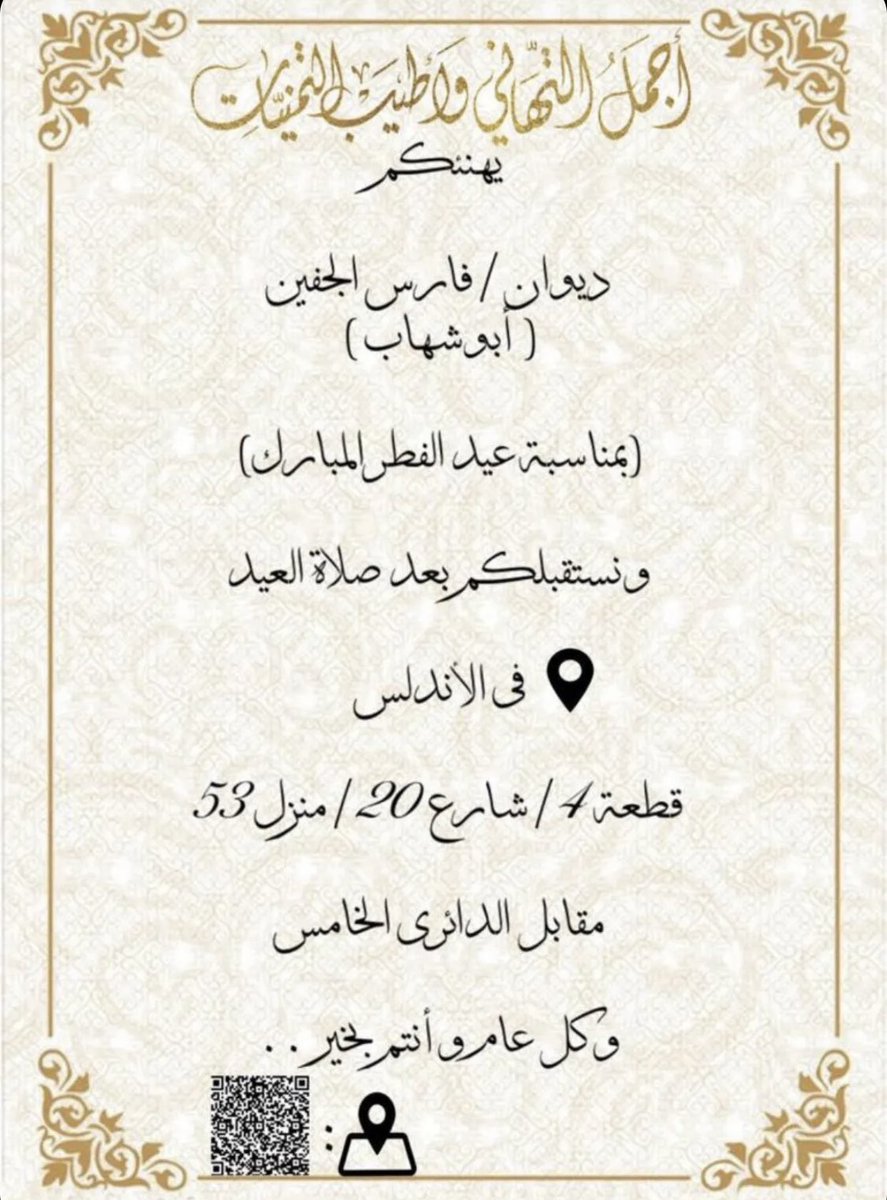 أجمل التهاني وأطيب التمنيات
يهنئكم
ديوان / فارس الجفين
( أبو شهاب )
(بمناسبة عيد الفطر المبارك)
ونستقبلكم بعد صلاة العيد
فى الأندلس
قطعة 4 / شارع 20 / منزل 53
مقابل الدائرى الخامس
وكل عام و أنتم بخير . .
: